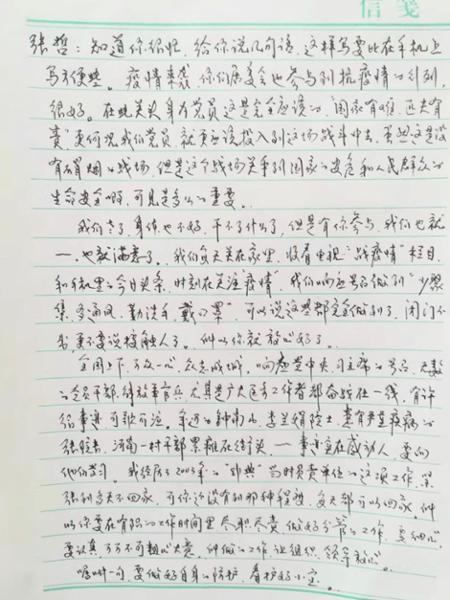 信笺
张哲：知道你很忙，给你说几句话，这样写要比在手机上
写方便些。疫情来袭，你们居委会也参与到抗疫情的行列，
很好。在此关头身为党员这是完全应该的，国家有难，匹夫有
责，更何况我们党员，就更应该投入到这场战斗中去，虽然这是没
有硝烟的战场，但是这个战场关乎到国家的安危和人民群众的
生命安全啊，可见是多么的重要。
我们老了，身体也不好，干不了什么了，但是有你参与，我们也就
一，也就满意了。我们每天关在家里，收看电视“战疫情”栏目，
和手机里的今日头条，时刻在关注疫情，我们响应号召做到“少聚
集、多通风、勤洗手、戴口罩”，可以说这些都完全做到了，闭门不
出，更不要说接触人了。所以你就放心好了。
全国上下，万众一心，众志成城，响应党中央、习主席的号召，无数
的党员干部、解放军官兵，尤其是广大医务工作者都奋战在一线，有许
多事迹可歌可泣。年迈的钟南山、李兰娟院士，患有严重疾病的
张定宇，河南一村干部累瘫在街头，一事迹实在感动人，要向
他们学习。我经历了2003年的“非典”，当时负责单位的这项工作，紧
张到多天不回家，可你还没有到那种程度，每天都可以回家。所
以你要在有限的工作时间里尽职尽责，做好分管的工作，要细心，
要认真，万万不可粗心大意，所做的工作让组织、领导放心。
嘱咐一句，要做好自身的防护，看护好小宝。